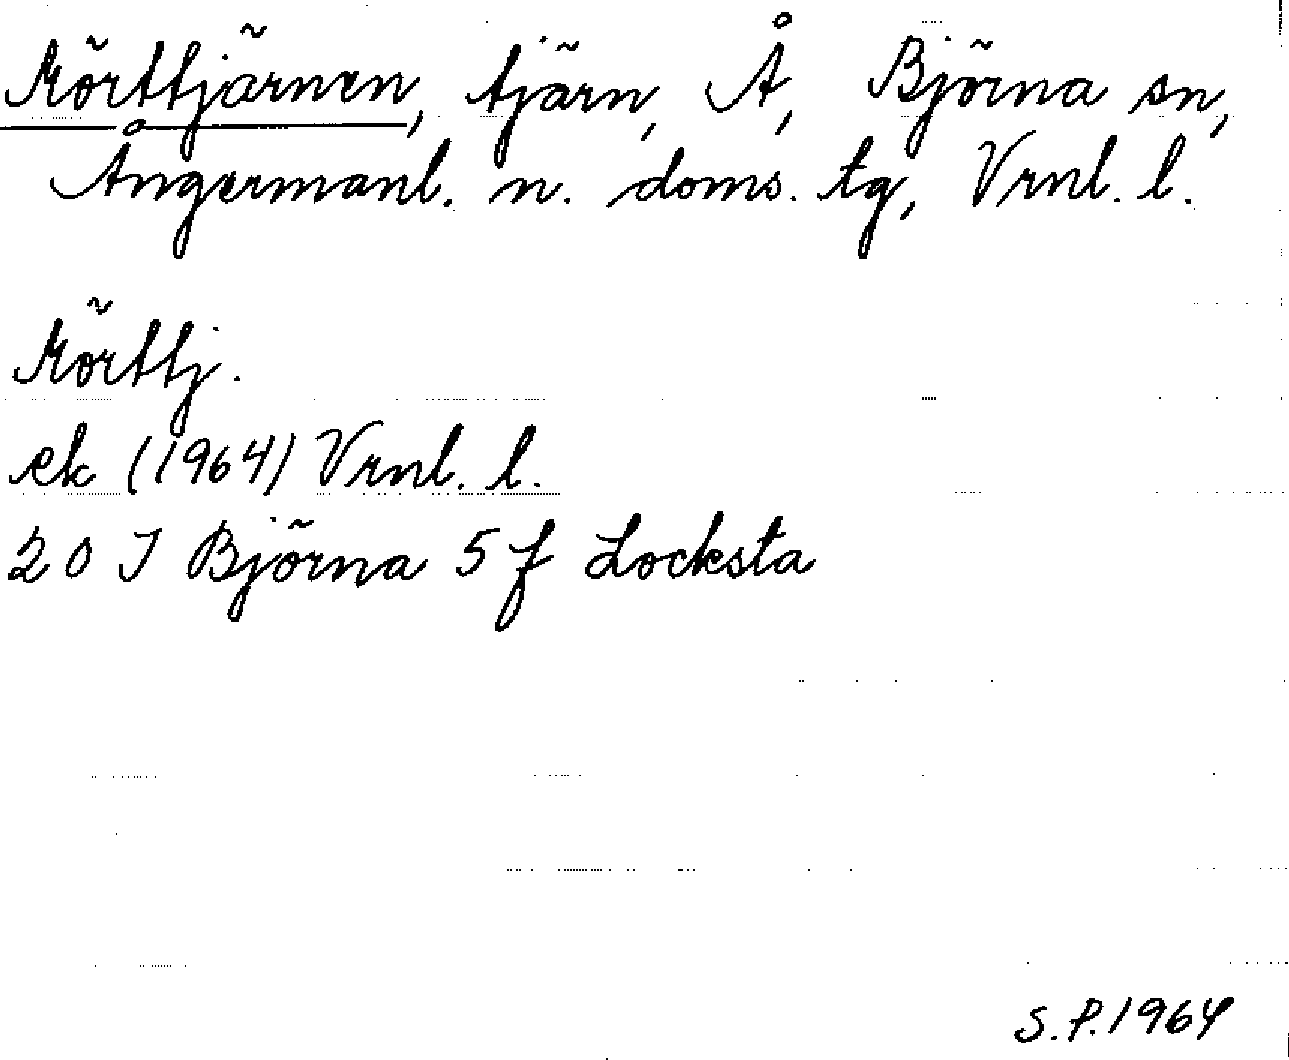 Mörttjärnen, tjärn, Å, Björna sn,
Ångermanl. n. doms. tg, Vrnl. l.
Mörttj.
ek (1964) Vrnl. l.
20 J Björna 5 f Locksta
S.P. 1964